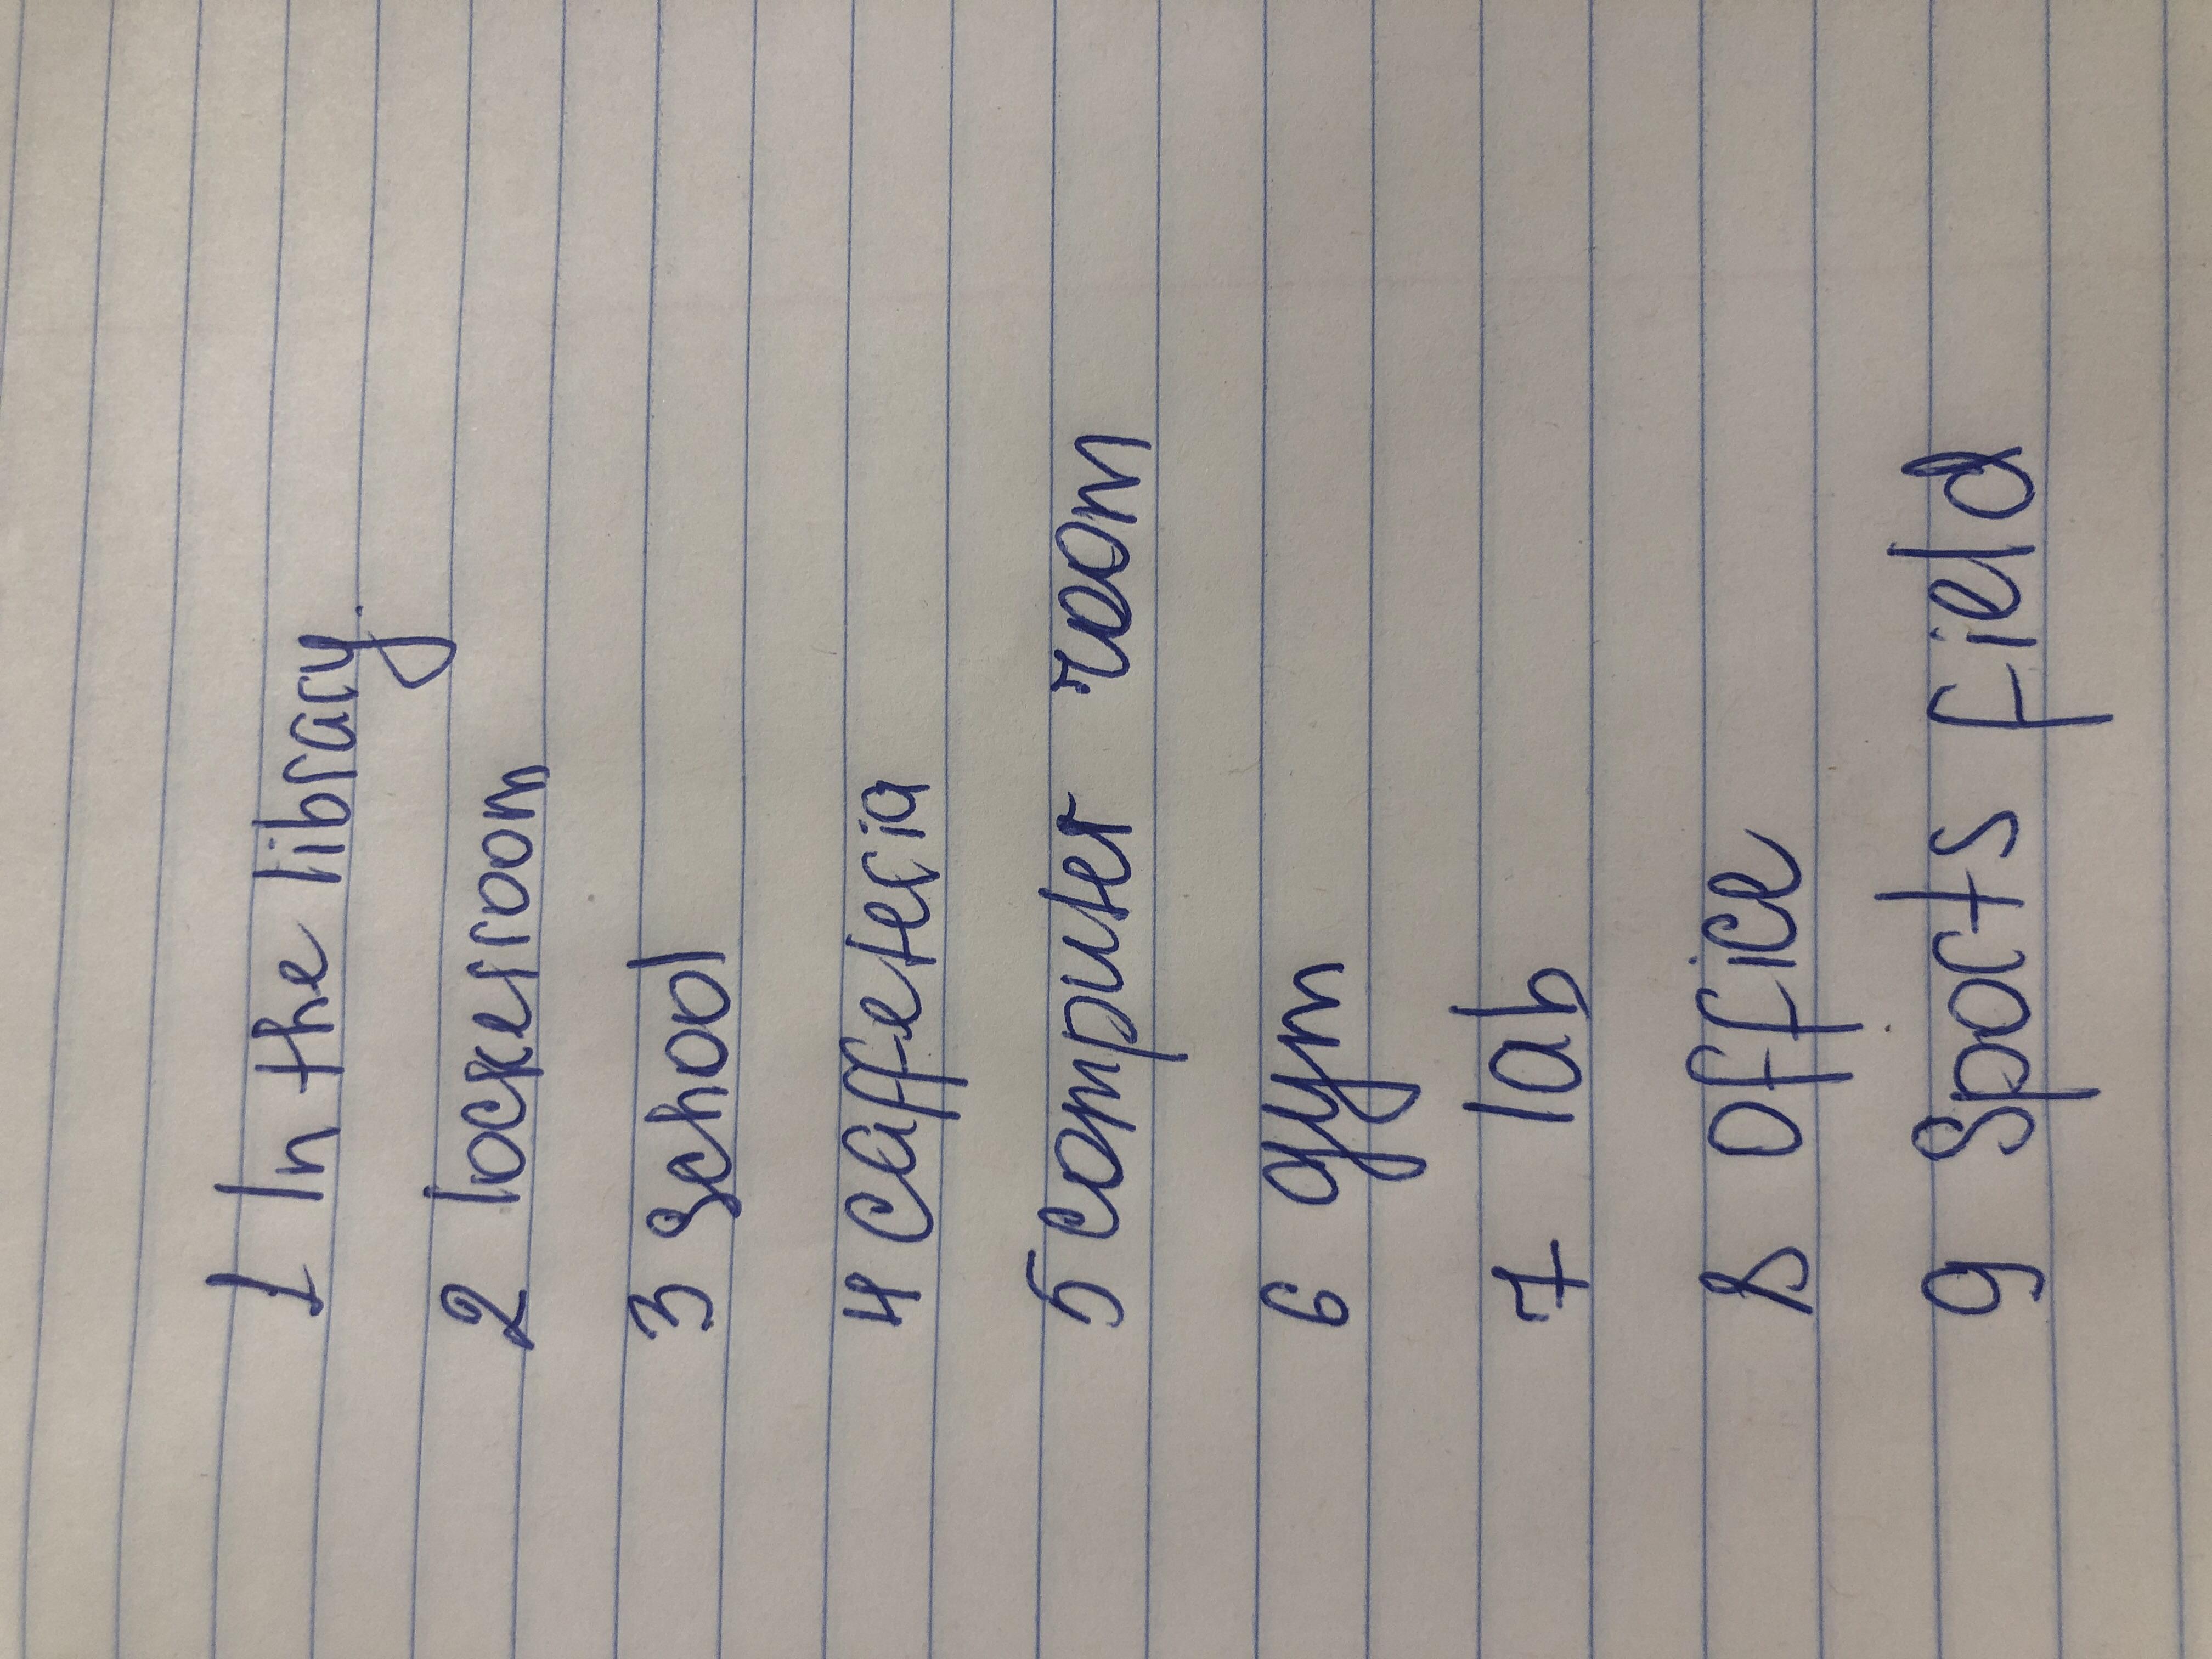 1 In the library.
2 lockerroom
3 school
4 caffeteria
5 computer room
6 gym
7 lab
8 office
9 Sports field